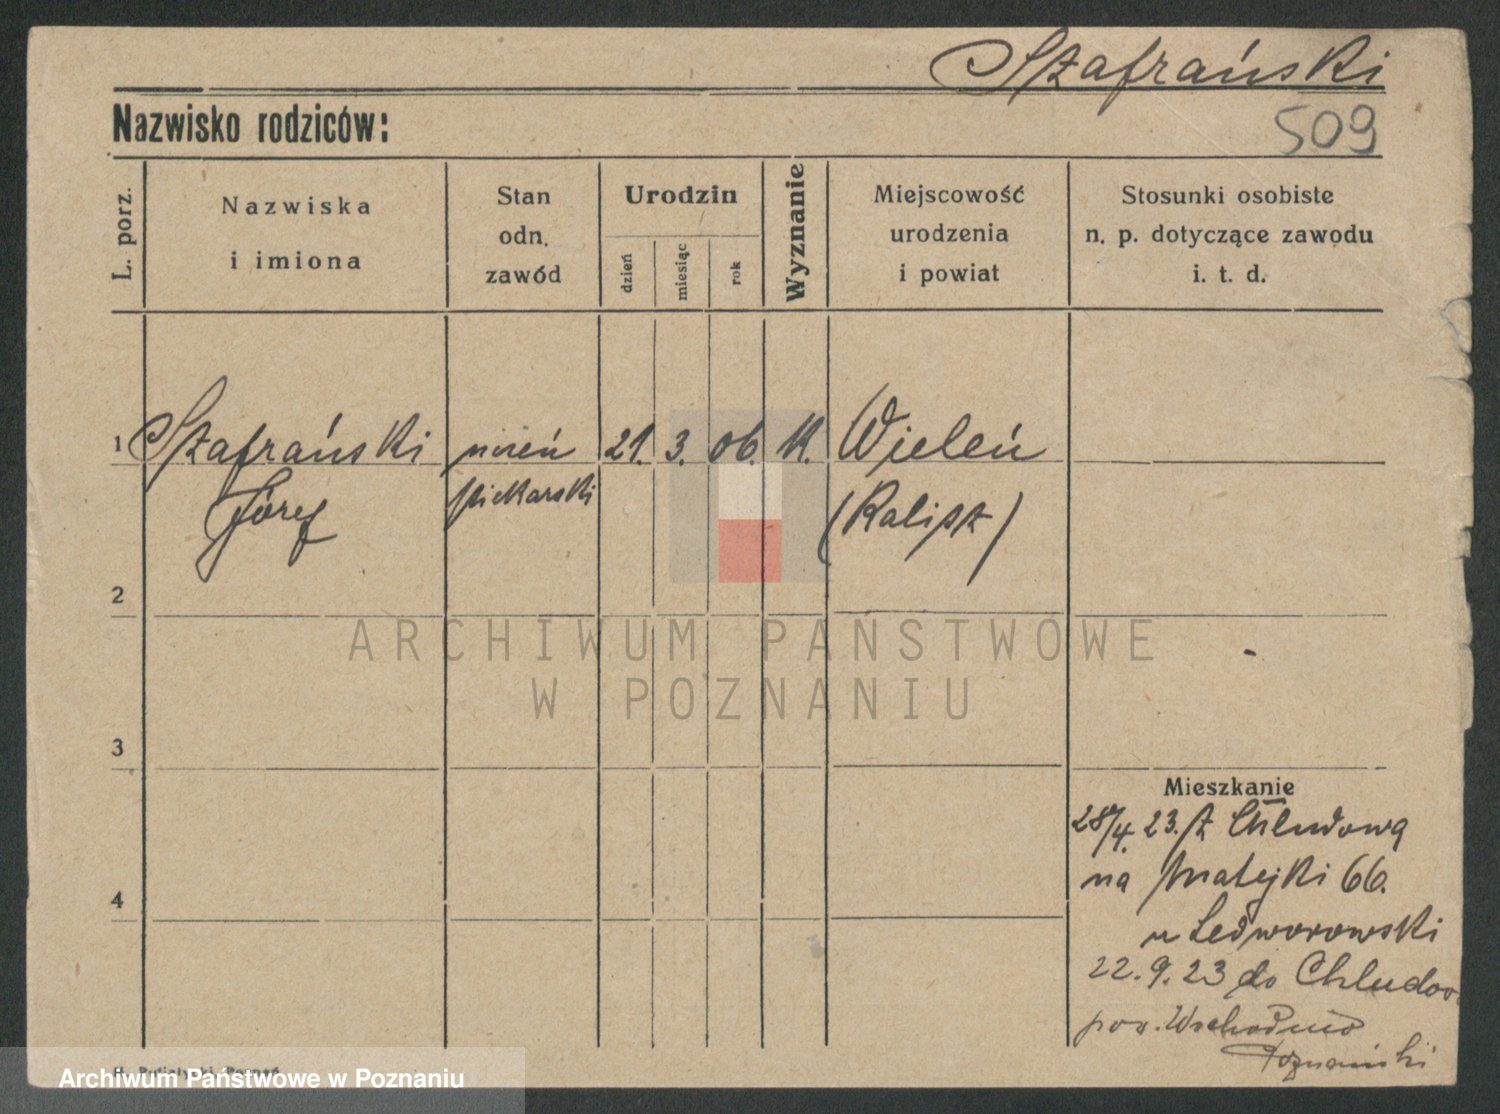 Szafrański
Nazwisko rodziców:
509
L. porz.
Nazwiska
i imiona
Stan
odn.
zawód
Urodzin
dzień
miesiąc
rok
Wyznanie
Miejscowość
urodzenia
i powiat
Stosunki osobiste
n. p. dotyczące zawodu
i. t. d.
1 Szafrański uczeń 21. 3. 06. K. Wieleń
Józef piekarski (Kalisz)
2
ARCHIWUM PAŃSTWOWE
W POZNANIU
3
Mieszkanie
28/4. 23. z Chludowa
na Matejki 66.
4
u Ledworowski
22.9.23 do Chludow
pow. Wschodnio
Poznański
Archiwum Państwowe w Poznaniu